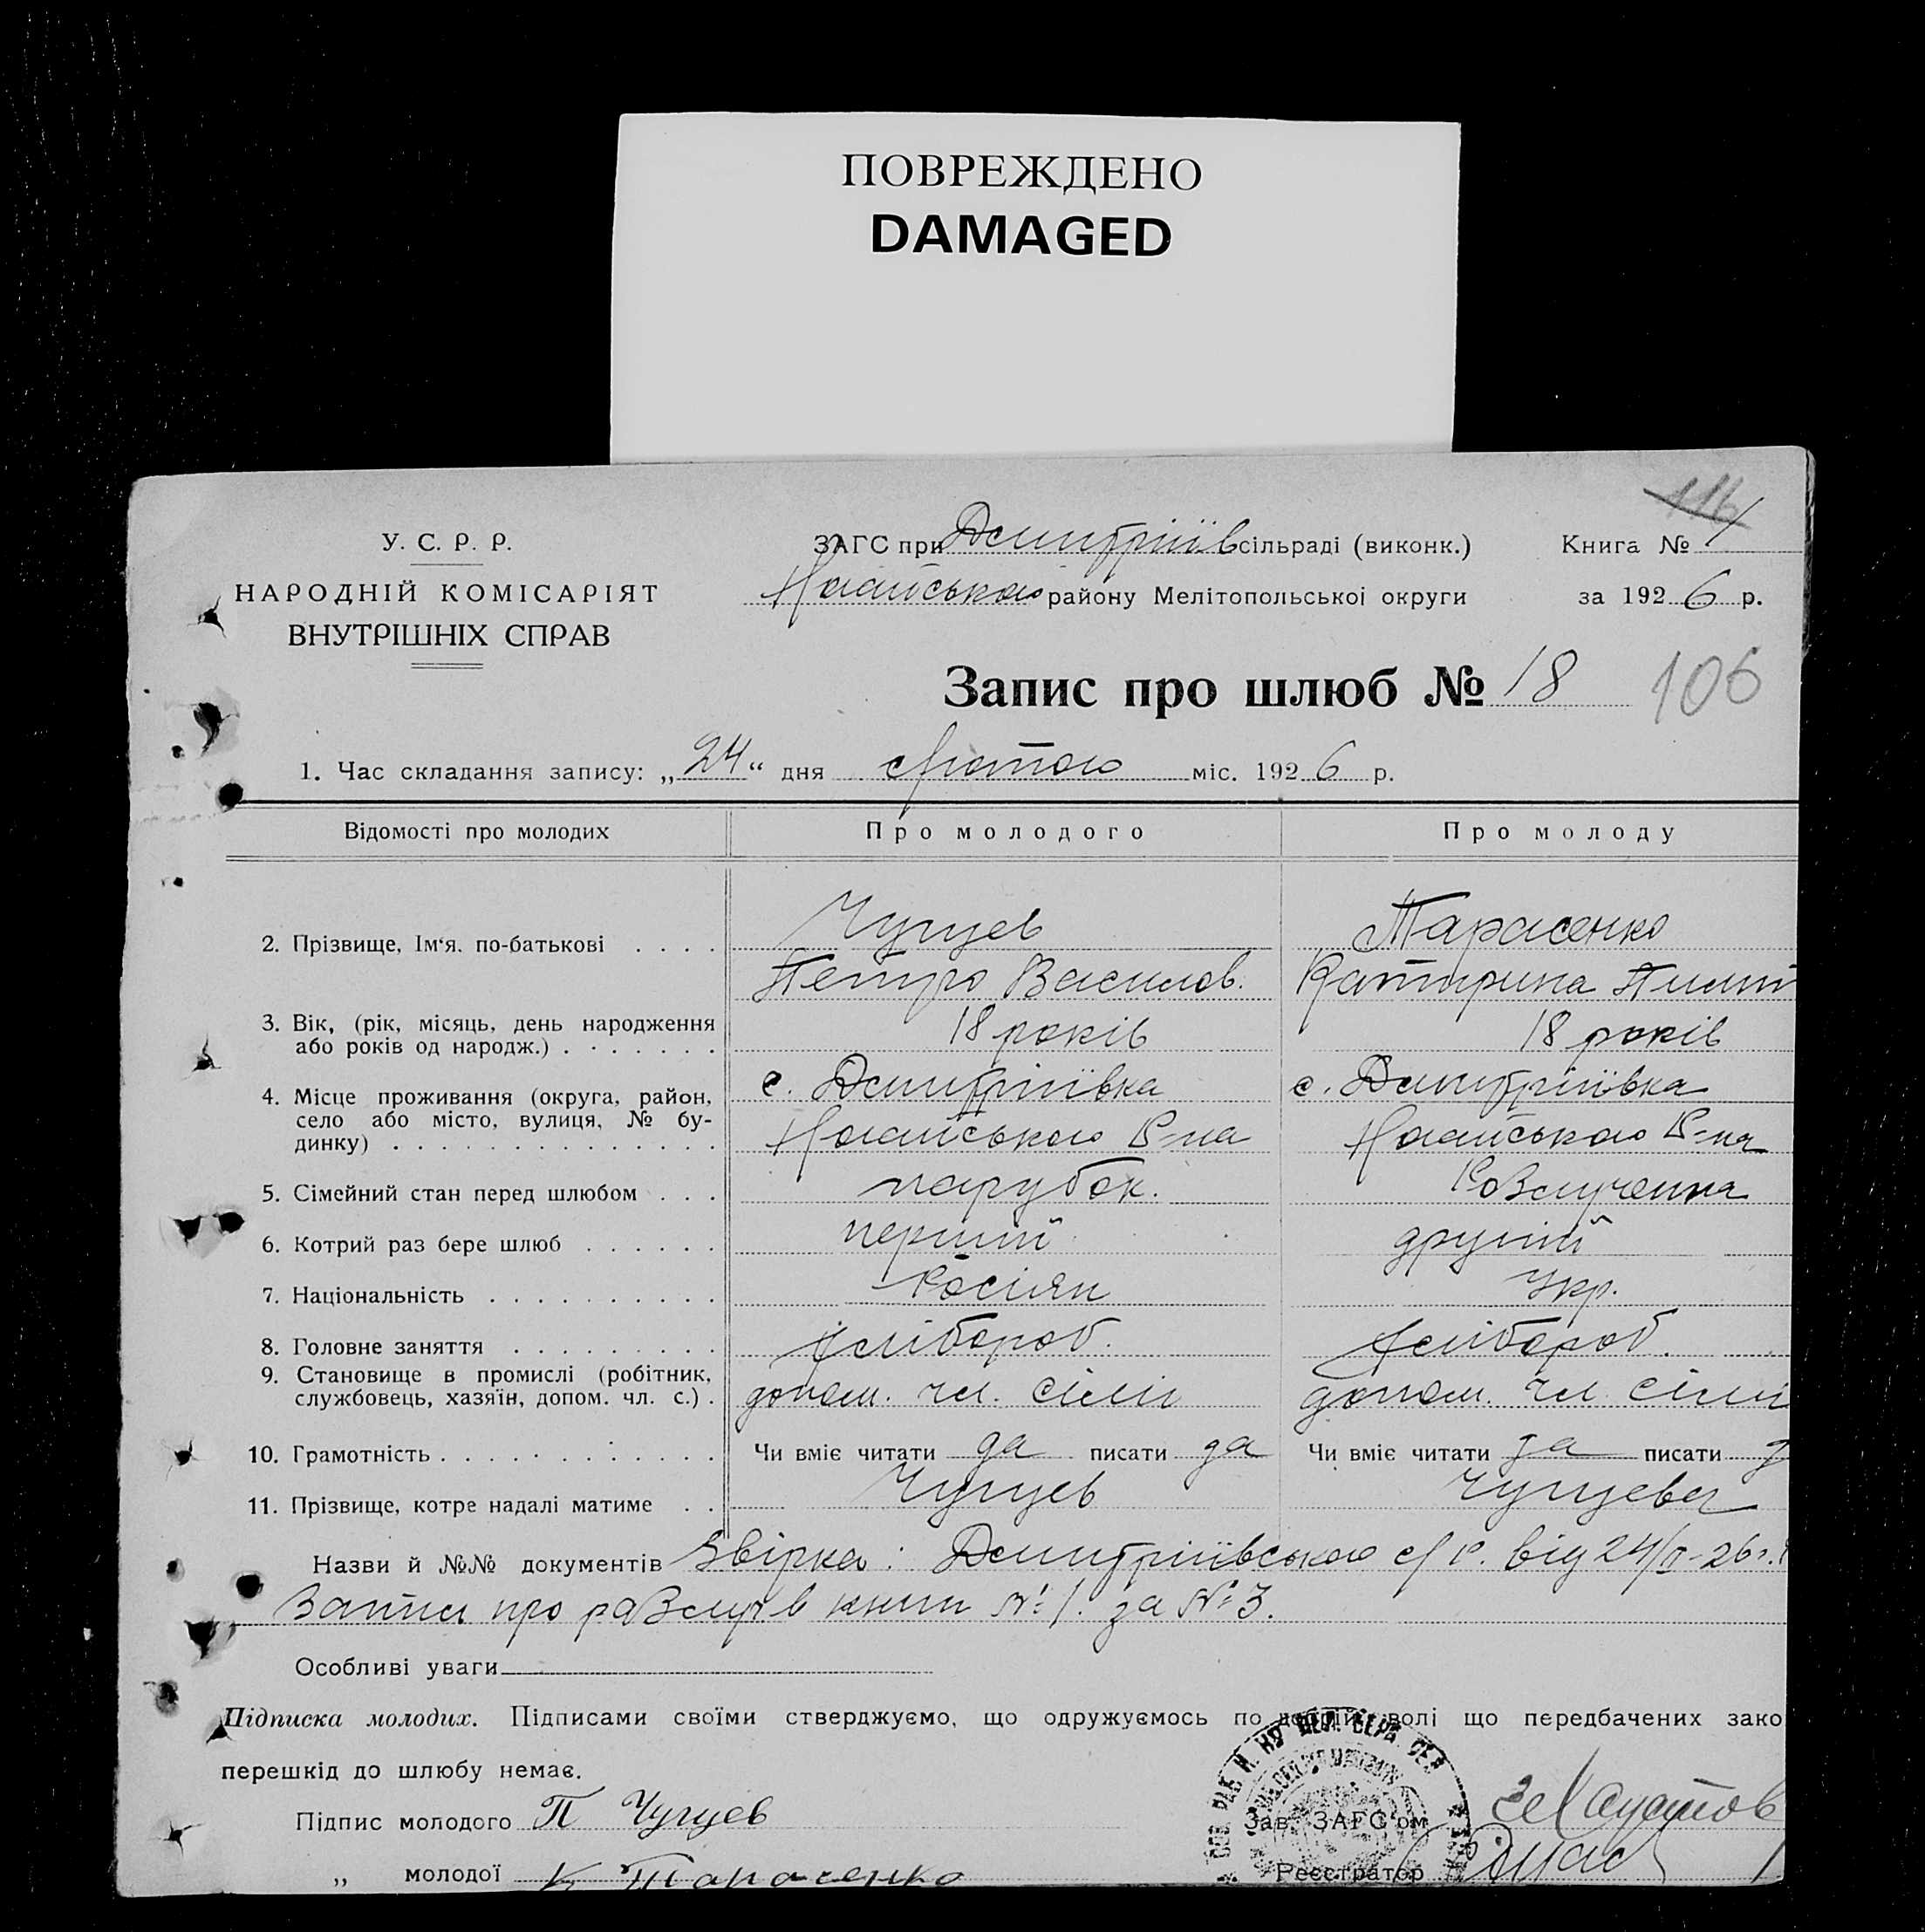 ПОВРЕЖДЕНО
DAMAGED
116
У. С. Р. Р.
НАРОДНІЙ КОМІСАРІЯТ
ВНУТРІШНІХ СПРАВ
ЗАГС при Дмитріїв сільраді (виконк.)
Книга № 1
Ногайського району Мелітопольської округи
за 1926 р.
Запис про шлюб № 18
106
1. Час складання запису: „24“ дня Лютого міс. 1926 р.
Відомості про молодих
Про молодого
Про молоду
2. Прізвище, Ім‘я, по-батькові . . . .
Чугуев
Тарасенко
Петро Василов.
Катирина Пилип
3. Вік, (рік, місяць, день народження
або років од народж.) . . . . . . .
18 років
18 років
4. Місце проживання (округа, район,
село або місто, вулиця, № бу-
динку) . . . . . . . . . . . . . . .
с. Дмитріївка
с. Дмитріївка
Ногайського Р-на
Ногайського Р-на
5. Сімейний стан перед шлюбом . . .
парубок.
Розлученна
6. Котрий раз бере шлюб . . . . . .
перший
другий
7. Національність . . . . . . . . . .
Росіян
Укр.
8. Головне заняття . . . . . . . . .
Хлібороб.
Хлібороб.
9. Становище в промислі (робітник,
службовець, хазяїн, допом. чл. с.) .
допом. чл. сімі
допом. чл сімі
10. Грамотність . . . . . . . . . . . .
Чи вміє читати да писати да
Чи вміє читати да писати д
11. Прізвище, котре надалі матиме . .
Чугуев
Чугуева
Назви й №№ документів Звірка: Дмитріївського с/Р. від 24/II-26 г.
Запись про разлуч в книги № 1. за № 3.
Особливі уваги
Підписка молодих. Підписами своїми стверджуємо, що одружуємось по добрій волі що передбачених зако
перешкід до шлюбу немає.
Підпис молодого П Чугуев
Зав. ЗАГС‘ом
„ молодої К Тарасенко
Реєстратор